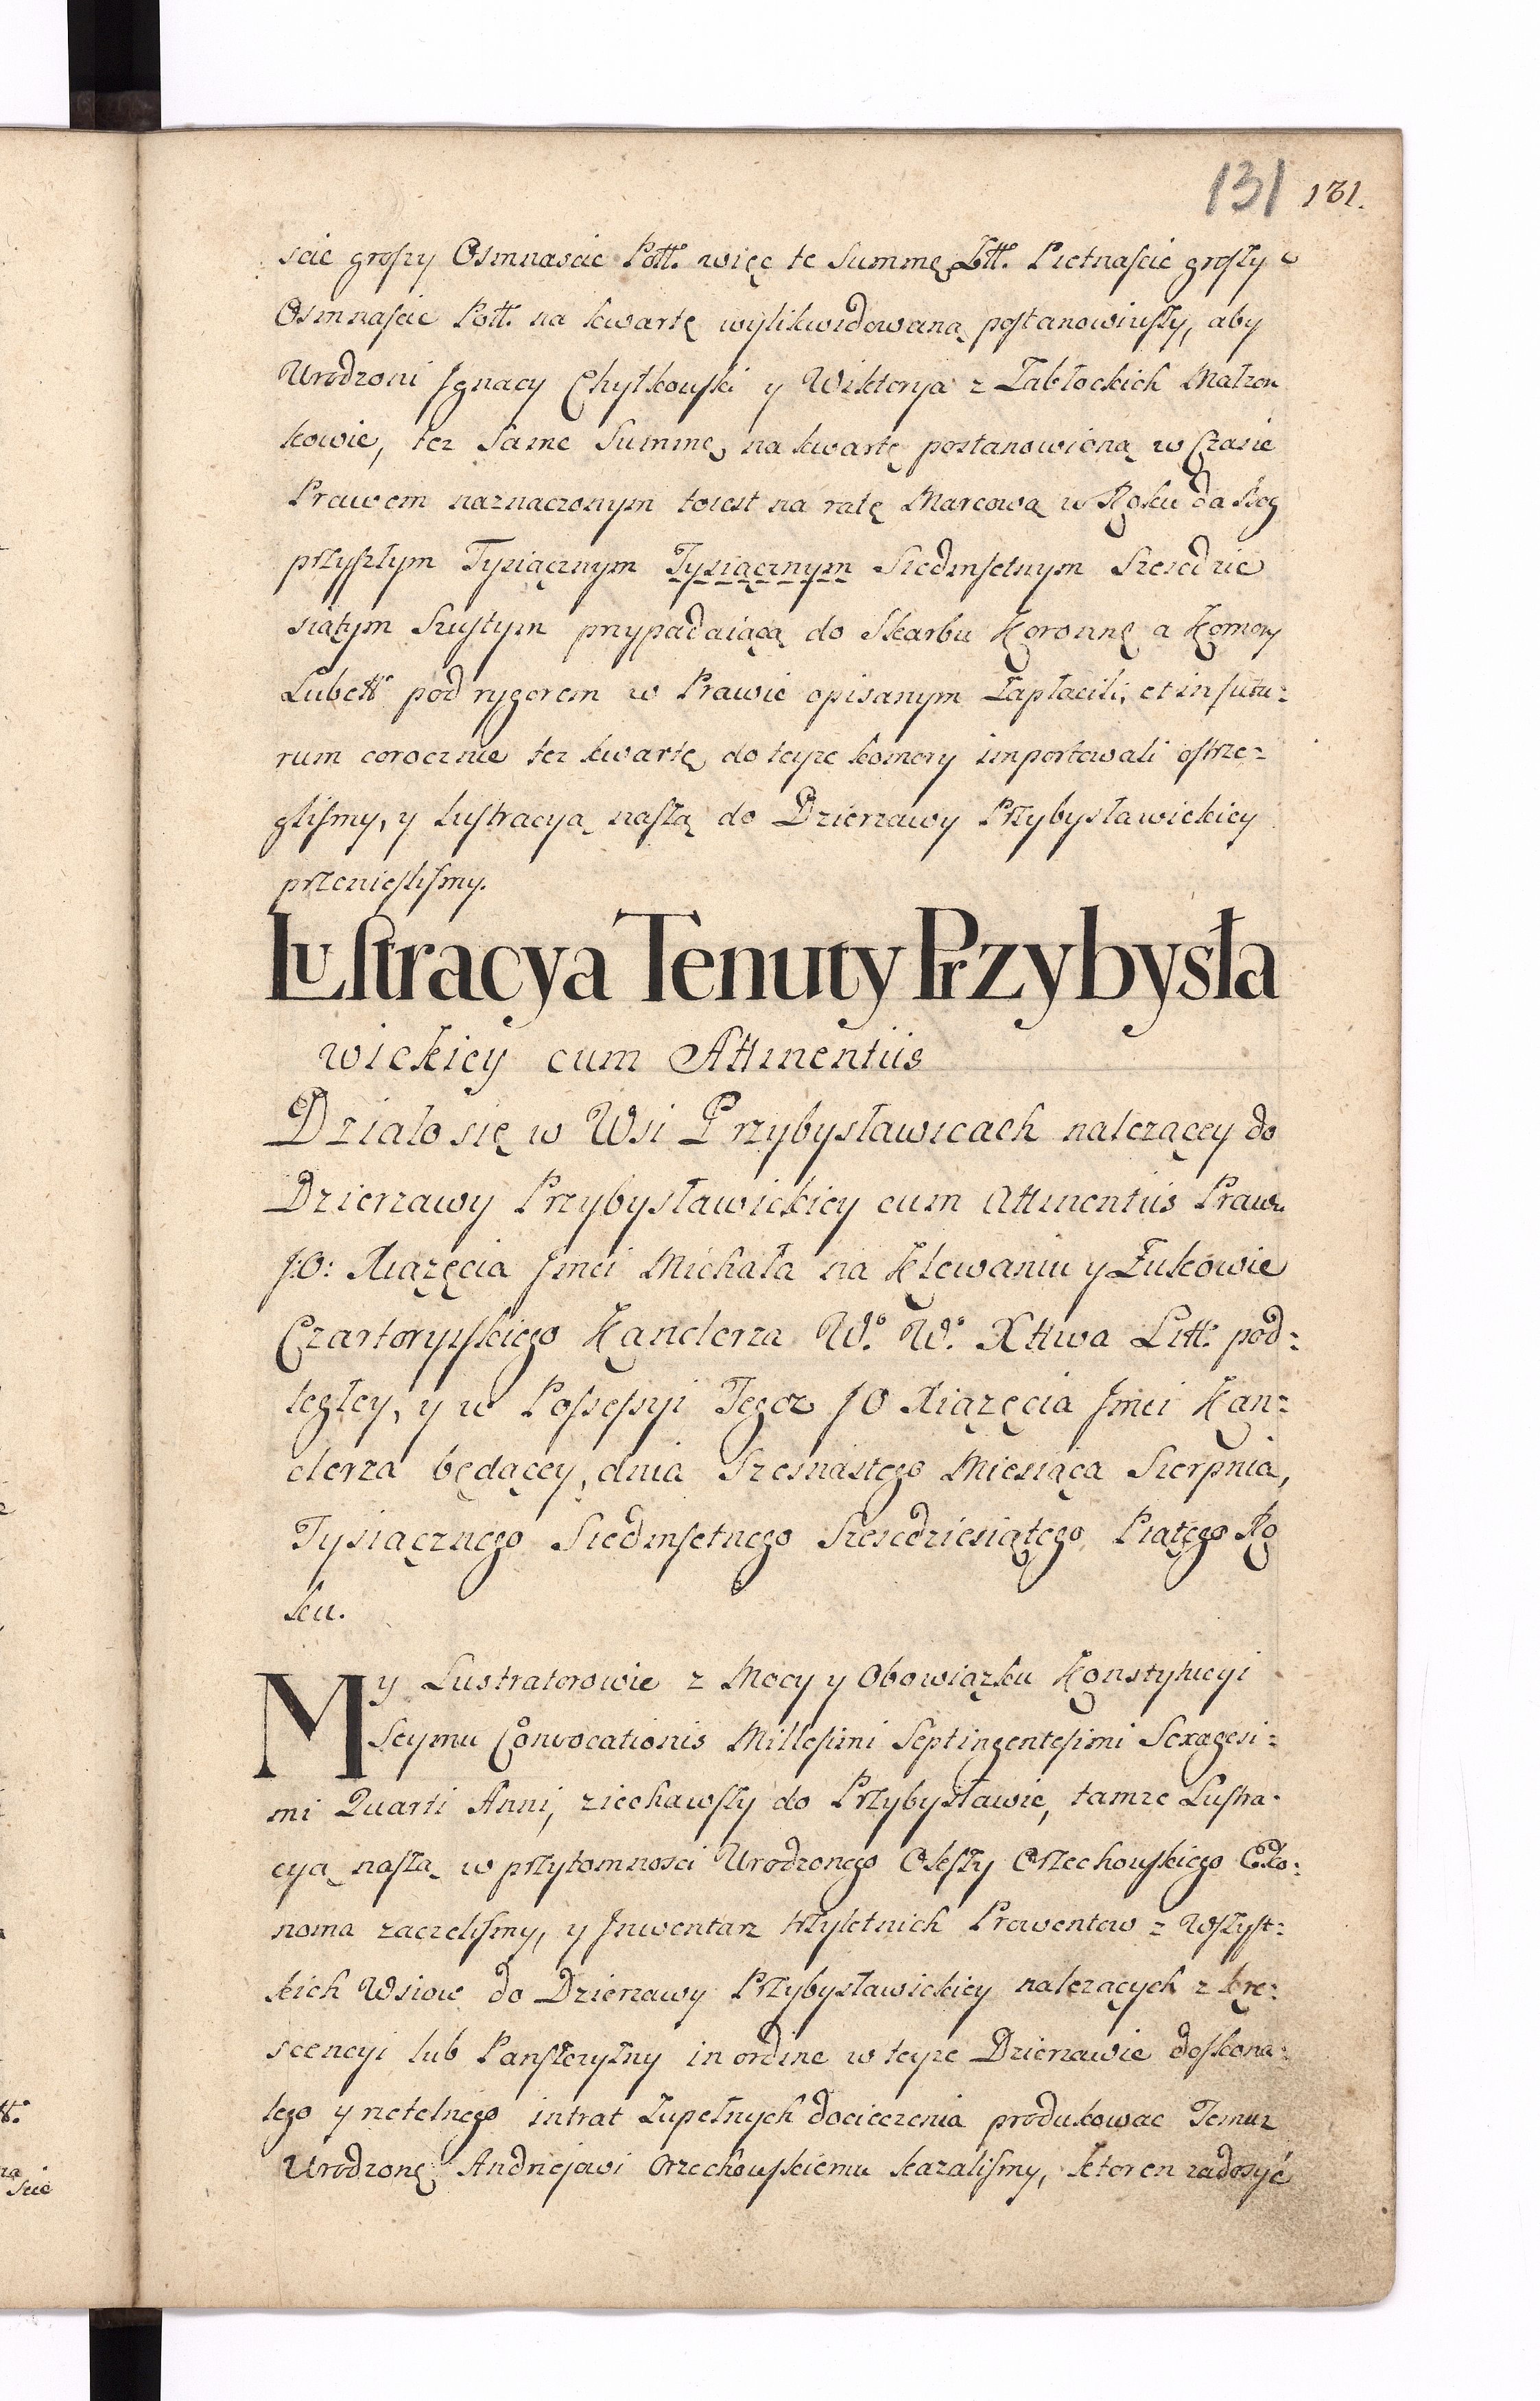 131 131.
scie groszy Osmnascie Poltt. więc te Summę Ztt. Pietnaście groszy
Osmnaście Poltt. na kwartę wylikwidowaną postanowiwszy, aby
Urodzoni Jgnacy Chylkowski y Wiktorya z Zabłockich Małzon
kowie, tez Same Summę na kwartę postanowioną w Czasie
Prawem naznaczonym toiest na ratę Marcową w Roku da Bog
przyszłym Tysiącznym Tysiącznym Siedmsetnym Szescdzie
siątym Szustym przypadaiącą do Skarbu Koronnę a Komory
Lubelt pod rygorem w Prawie opisanym Zapłacili, et in futu:
rum corocznie tez kwartę do teyze komory importowali ostrze:
gliśmy, y lustracyą naszą do Dzierzawy Przybysławickiey
przeniesliśmy.
Lustracya Tenuty Przybysła
wickiey cum Attinentiis
Działo się w Wsi Przybysławicach nalezącey do
Dzierzawy Przybysławickiey cum Attinentiis Praw.
J:O: Xiązęcia Jmci Michała na Klewaniu y Zukowie
Czartoryiskiego Kanclerza W.° W.° Xttwa Litt. pod:
legley, y w Possessyi Tegoz JO Xiązęcia Jmci Kan:
clerza będącey, dnia Szesnastego Miesiąca Sierpnia,
Tysiącznego Siedmsetnego Szescdziesiątego Piątego Ro
ku.
My Lustratorowie z Mocy y Obowiązku Konstytucyi
Seymu Convocationis Millesimi Septingentesimi Sexagesi:
mi Quarti Anni, ziechawszy do Przybysławic, tamze Lustra.
cyą naszą w przytomnosci Urodzonego Orzechowskiego Eko:
noma zaczeliśmy, y Jnwentarz trzyletnich Prowentow z Wszyst:
kich Wsiow do Dzierzawy Przybysławickiey nalezących z kre:
scencyi lub Panszczyzny in ordine w teyze Dzierzawie doskona:
lego y rzetelnego intrat Zupełnych docieczenia produkowac Temuz
Urodzonę Andrzejowi Orzechowskiemu kazaliśmy, ktoren zadosyć